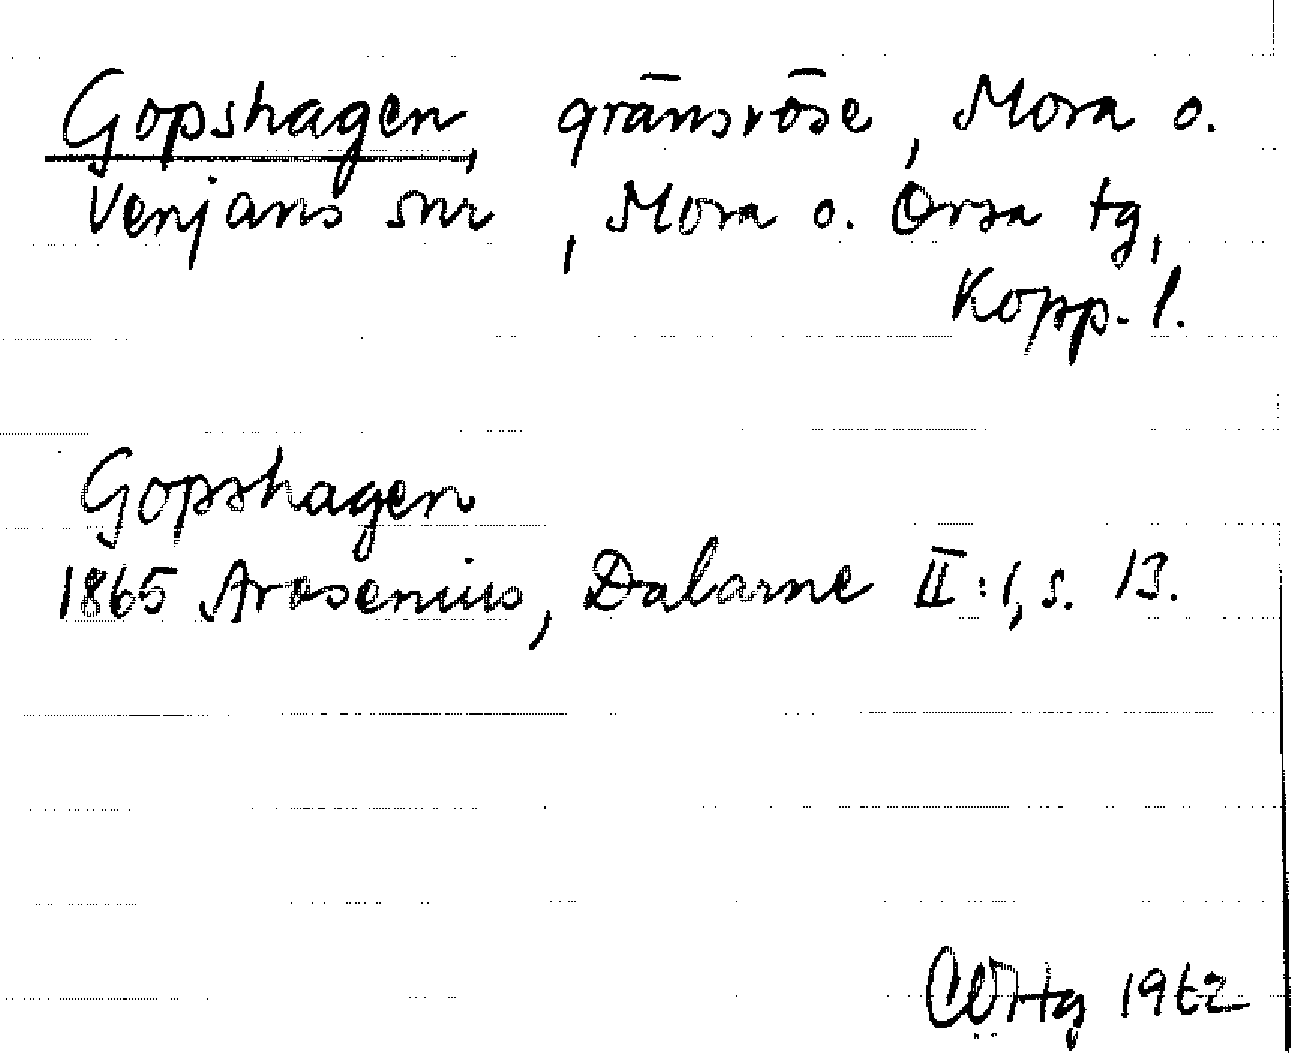 Gopshagen, gränsröse, Mora o.
Venjans snr, Mora o. Orsa tg,
Kopp. l.
Gopshagen
1865 Arosenius, Dalarne II:1, s. 13.
1962